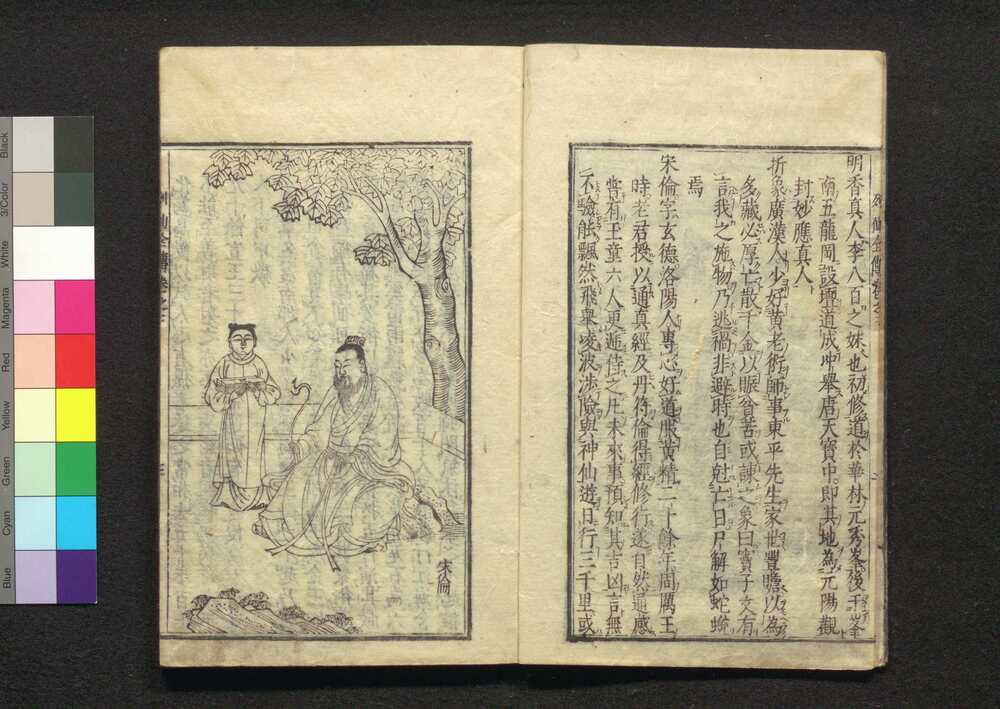 明香真人李八百之妹也初修道於華林元秀峯後于峯
南五龍岡設壇道成冲舉唐天寶中即其地為元陽觀
封妙應真人
折象廣漢人少好黄老術師事東平先生家世豐贍以為
多藏必厚亡散千金以賑貧苦或諫象曰竇子文有
言我之施物乃逃禍非避時也自尅亡日尸解如蛇蛻
焉
宋倫字玄德洛陽人專心好道服黄精二十餘年周厲王
時老君授以通真經及丹符倫得經修行遂自然通感
嘗有玉童六人更遞侍之凡未來事預知其吉凶言無
不驗能飄然飛舉凌波渉險與神仙遊日行三千里或
宋倫
Black
3/Color
White
Magenta
Red
Yellow
Green
Cyan
Blue